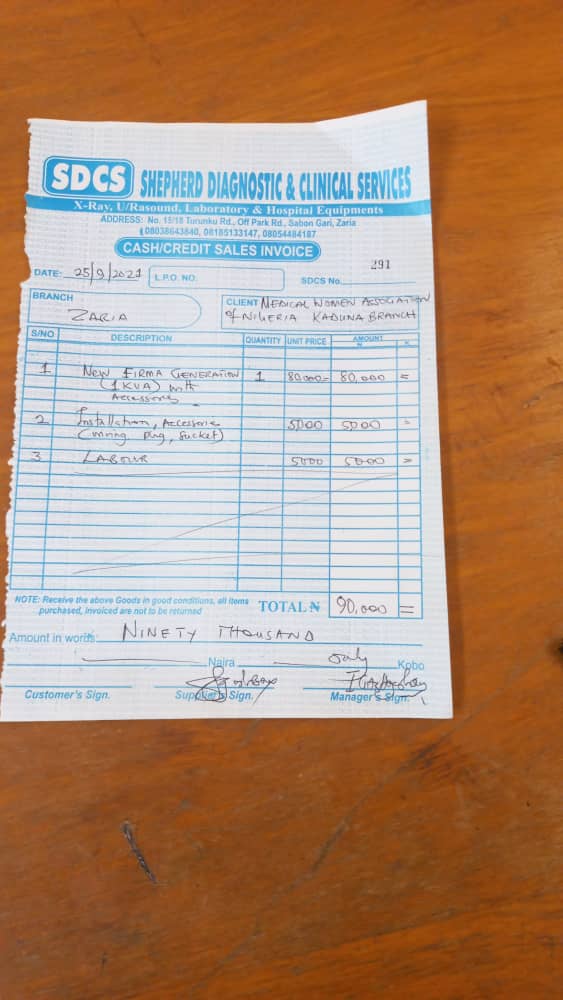 SDCS SHEPHERD DIAGNOSTIC & CLINICAL SERVICES
X-Ray, U/Rasound, Laboratory & Hospital Equipments
ADDRESS: No. 15/18 Turunku Rd., Off Park Rd., Sabon Gari, Zaria
08038643840, 08185133147, 08054484187
CASH/CREDIT SALES INVOICE
DATE: 25/9/2021 L.P.O. NO. SDCS No. 291
BRANCH ZARIA
CLIENT MEDICAL WOMEN ASSOCIATION
of NIGERIA KADUNA BRANCH
S/NO DESCRIPTION QUANTITY UNIT PRICE AMOUNT
N K
1 New FIRMA GENERATION 1 80,000= 80,000 =
(1KVA) with
Accessories
2 Installation, Accessories 5000 5000 =
(wiring plug, Socket)
3 LABOUR 5000 5000 =
NOTE: Receive the above Goods in good conditions, all items
purchased, invoiced are not to be returned
TOTAL N 90,000 =
Amount in words: NINETY THOUSAND
Naira only Kobo
Customer's Sign. Supplier's Sign. Manager's Sign.